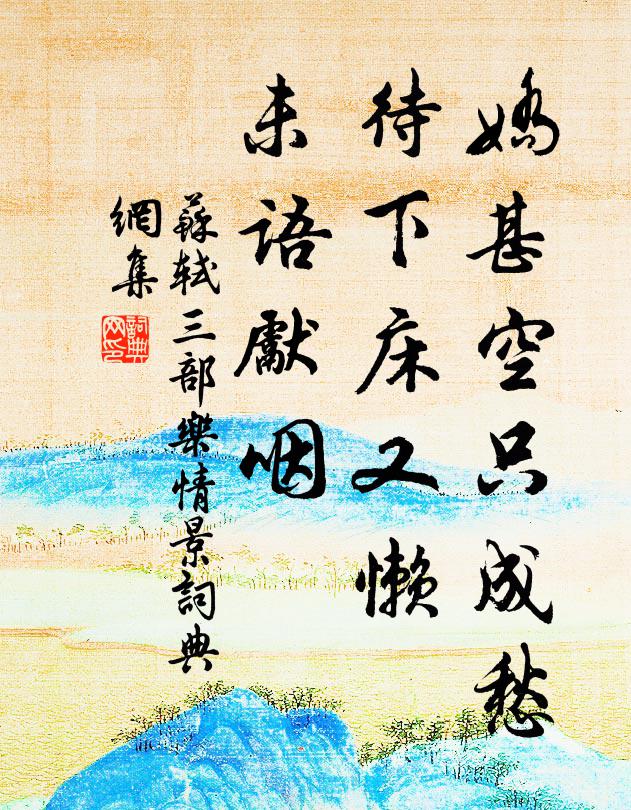 嬌甚空只成愁
待下床又懶
未語獻咽
蘇軾三部樂情景詞典
網集
詞典
网印